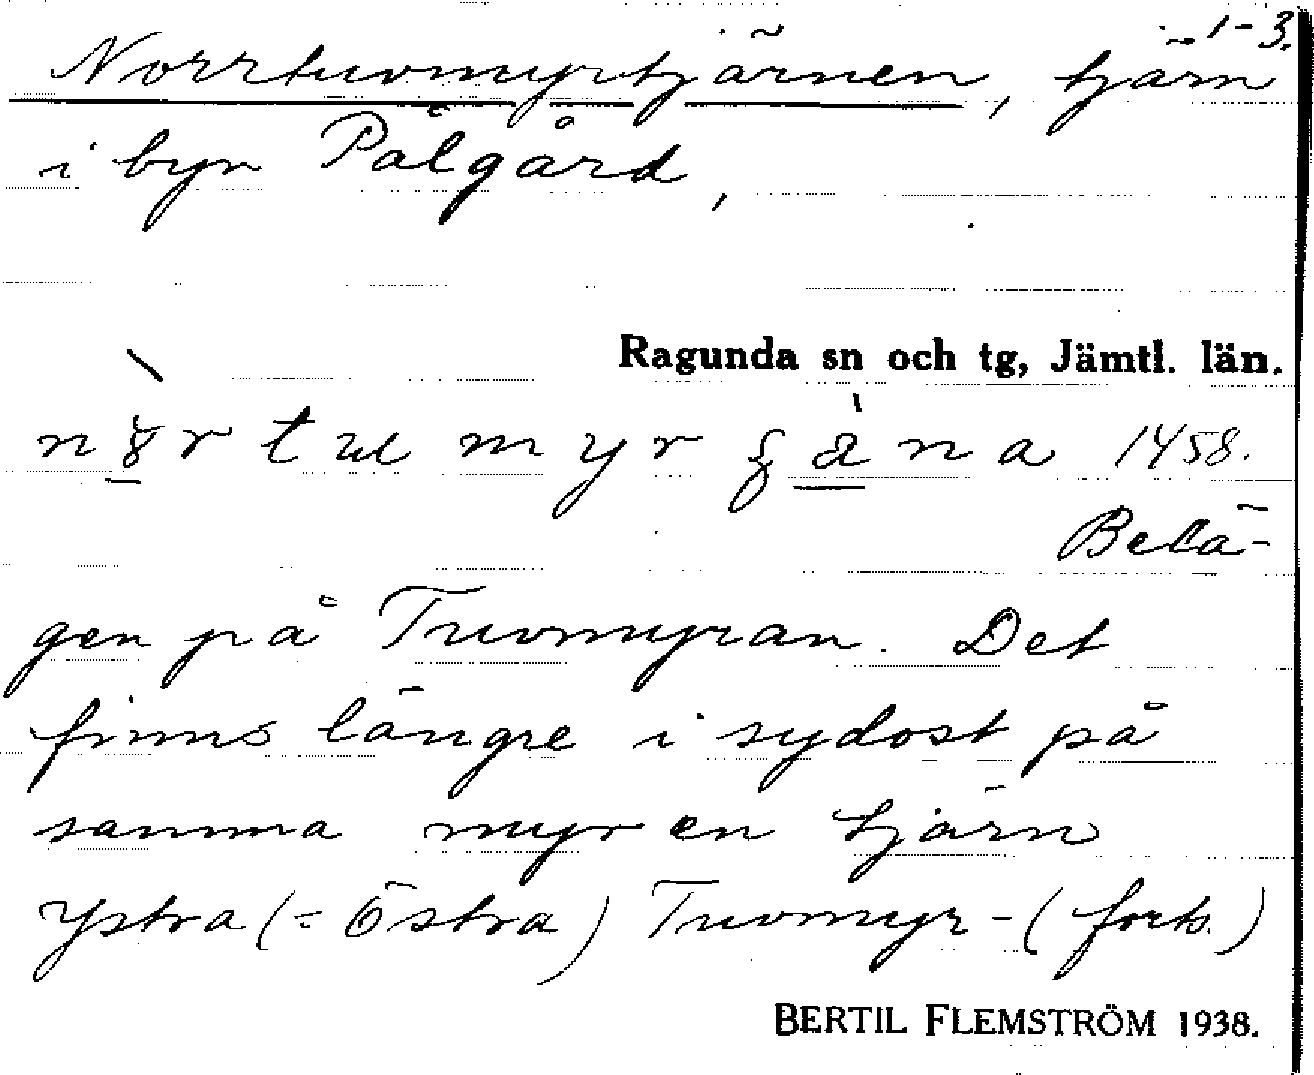 1-3.
Norrtuvmyrtjärnen, tjärn
i byn Pålgård,
Ragunda sn och tg, Jämtl. län.
1458.
Belä-
gen på Tuvmyran. Det
finns längre i sydost på
samma myr en tjärn
Ystra (= Östra) Tuvmyr- (forts.)
BERTIL FLEMSTRÖM 1938.